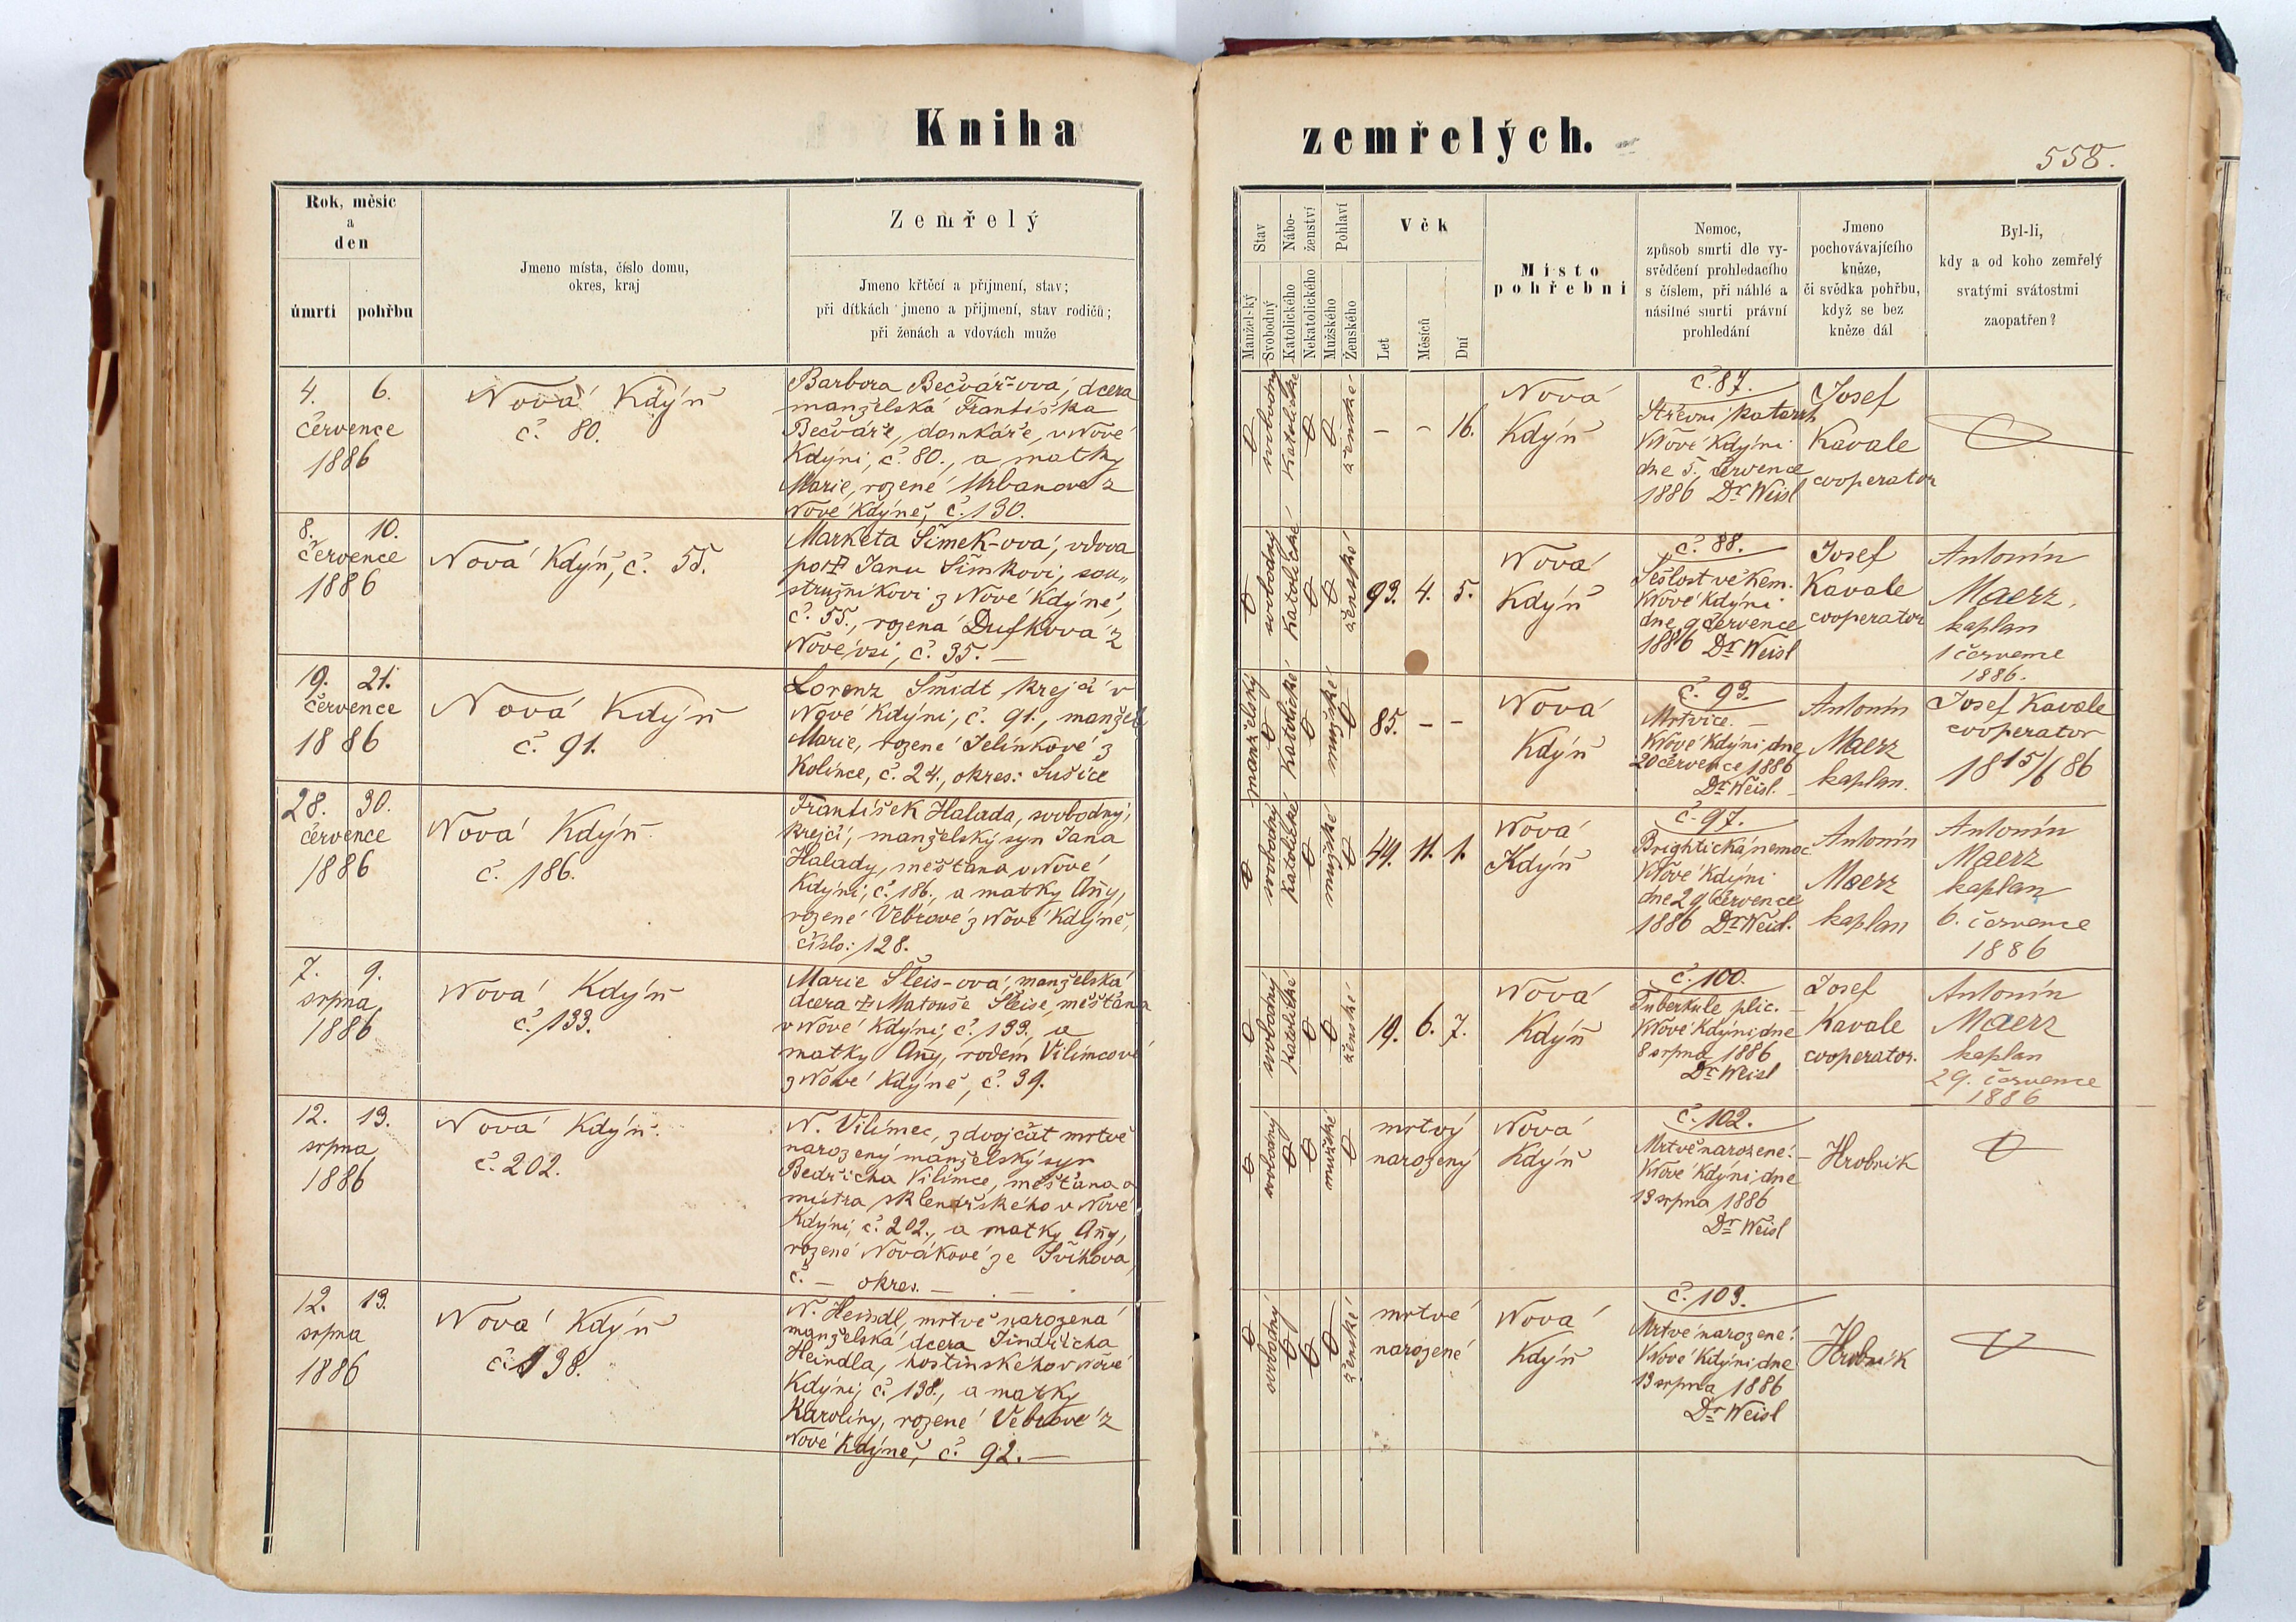 Kniha
zemřelých.
558.
Rok, měsíc
a
den
úmrtí
pohřbu
Jmeno místa, číslo domu,
okres, kraj
Zemřelý
Jmeno křtěcí a příjmení, stav;
při dítkách jmeno a příjmení, stav rodičů;
při ženách a vdovách muže
Stav
Nábo-
ženství
Pohlaví
Manžel-ký
Svobodný
Katolického
Nekatolického
Mužského
Ženského
Věk
Let
Měsíců
Dní
Místo
pohřební
Nemoc,
způsob smrti dle vy-
svědčení prohledacího
s číslem, při náhlé a
násilné smrti právní
prohledání
Jmeno
pochovávajícího
kněze,
či svědka pohřbu,
když se bez
kněze dál
Byl-li,
kdy a od koho zemřelý
svatými svátostmi
zaopatřen?
4. 6.
července
1886
Nová Kdýň
č. 80.
Barbora Bečvář-ova, dcera
manželská Františka
Bečváře, domkáře, v Nové
Kdýni, č. 80., a matky
Marie, rozené Urbanove z
Nové Kdýně, č. 130.
svobodný
Katolické
ženské
- - 16.
Nová
Kdýň
č. 87.
Střevní katarrh
V Nové Kdýni
dne 5. července
1886 Dr Weisl
Josef
Kavale
cooperator
8. 10.
července
1886
Nová Kdýň, č. 55.
Markéta Šimek-ová, vdova
po † Janu Šimkovi, sou„
stružníkovi z Nové Kdýně,
č. 55., rozená Dufková z
Nové vsi, č. 35. —
svobodný
Katolické
ženské
93. 4. 5.
Nová
Kdýň
č. 88.
Sešlost věkem.
V Nové Kdýni
dne 9 července
1886 Dr Weisl
Josef
Kavale
cooperator
Antonín
Maerz,
kaplan
1 července
1886.
19. 21.
července
1886
Nová Kdýň
č. 91.
Lorenz Šmidt, krejčí v
Nové Kdýni, č. 91., manžel
Marie, rozené Jelínkové z
Kolince, č. 24., okres: Sušice
manželský
Katolické
mužské
85. - -
Nová
Kdýň
č. 93.
Mrtvice. —
V Nové Kdýni dne
20 července 1886
Dr Weisl.
Antonín
Maerz
kaplan.
Josef Kavale
cooperator
18 15/6 86
28. 30.
července
1886
Nová Kdýň.
č. 186.
František Halada, svobodný,
krejčí, manželský syn Jana
Halady, měšťana v Nové
Kdýni, č. 186., a matky Ańy,
rozené Vebrové z Nové Kdýně,
číslo: 128.
svobodný
Katolické
mužské
44. 11. 1.
Nová
Kdýň
č. 97.
Brightická nemoc
V Nové Kdýni
dne 29 července
1886 Dr Weisl.
Antonín
Maerz
kaplan
Antonín
Maerz
kaplan
6. července
1886
7. 9.
srpna
1886
Nová Kdýň
č. 133.
Marie Šleis-ová, manželská
dcera † Matouše Šleise, měšťana
v Nové Kdýni, č. 133, a
matky Ańy, rodem Vilímcové
z Nové Kdýně, č. 39.
svobodný
Katolické
ženské
19. 6. 7.
Nová
Kdýň
č. 100.
Tuberkule plic. —
V Nové Kdýni dne
8 srpna 1886
Dr Weisl
Josef
Kavale
cooperator.
Antonín
Maerz
kaplan
29. července
1886
12. 13.
srpna
1886
Nová Kdýň.
č. 202.
N. Vilímec, z dvojčat mrtvě
narozený manželský syn
Bedřicha Vilímce, měšťana a
mistra sklenářského v Nové
Kdýni, č. 202., a matky Ańy,
rozené Novákové ze Švihova,
č. — okres. —
svobodný
mužské
mrtvý
narozený
Nová
Kdýň
č. 102.
Mrtvě narozené! —
V Nové Kdýni, dne
13 srpna 1886
Dr Weisl
Hrobník
12. 13.
srpna
1886
Nová Kdýň
č. 138.
N. Heindl, mrtvě narozená
manželská dcera Jindřicha
Heindla, hostinského v Nové
Kdýni, č. 138., a matky
Karolíny, rozené Vebrové z
Nové Kdýně, č. 92. —
svobodný
ženské
mrtvé
narozené
Nová
Kdýň
č. 103.
Mrtvě narozené!
V Nové Kdýni, dne
13 srpna 1886
Dr Weisl
Hrobník